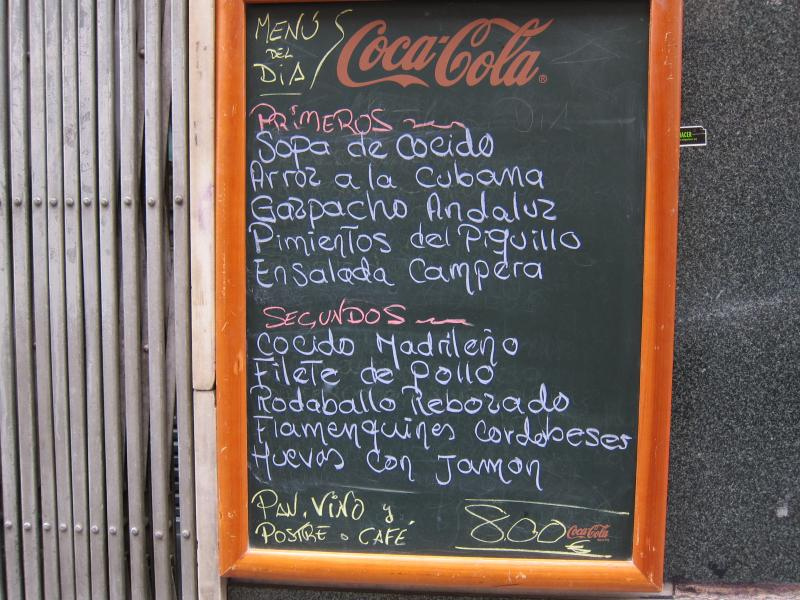 MENÚ
DEL
DIA
Coca-Cola
PRIMEROS
Sopa de cocido
Arroz a la cubana
Gazpacho Andaluz
Pimientos del Piquillo
Ensalada Campera
SEGUNDOS
Cocido Madrileño
Filete de pollo
Rodaballo Rebozado
Flamenquines cordobeses
Huevos con Jamon
PAN, VINO y
POSTRE o CAFÉ
8.00 €
Coca-Cola